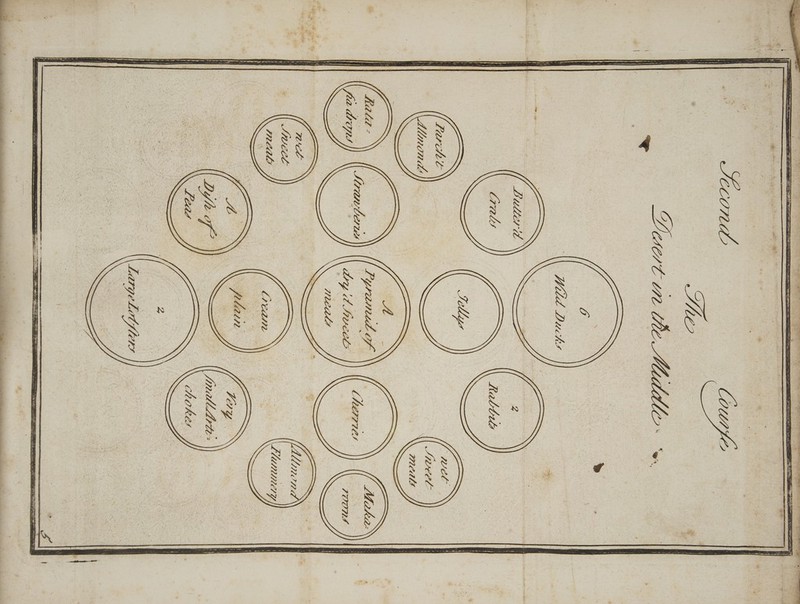 Second Courſe
The
Desert in the Middle.
6
Wild Ducks
Butter'd
Crabs
2
Rabbits
Jellys
Parch't
Allmonds
wet
Sweet
meats
Rata-
fia drops
Strawberies
A
Pyramid of
dry'd Sweet
meats
Cherries
Maka
roons
wet
Sweet
meats
Cream
plain
Allmond
Flummery
A
Diſh of
Peas
Very
ſmall Arti-
chokes
2
Large Lobſters
5